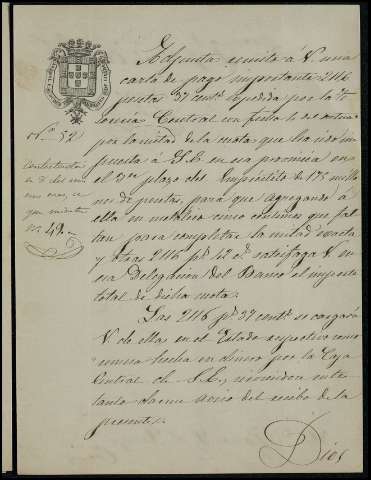 Adjunta remito á V. una
carta de pago importante 2116
pesetas 37 cents. expedida por la Te-
sorería Central con fecha 1o. del actual
por la mitad de la cuota que ha sido im-
puesta á S.E. en esa provincia en
el 3er. plazo del Empréstito de 175 millo-
nes de pesetas, para que agregando á
ella en metálico cinco céntimos que fal-
tan para completar la mitad exacta
y otras 2116 ps. 42 cs. satisfaga V. en
esa Delegación del Banco el importe
total de dicha cuota.
Las 2116 ps. 37 cents. se cargará
V. de ellas en el Estado respectivo como
remesa hecha en dinero por la Caja
Central de S.E., sirviéndose entre-
tanto darme aviso del recibo de la
presente.
Dios
No. 52
Contestada
en 3 del mismo
mes
no. 49.